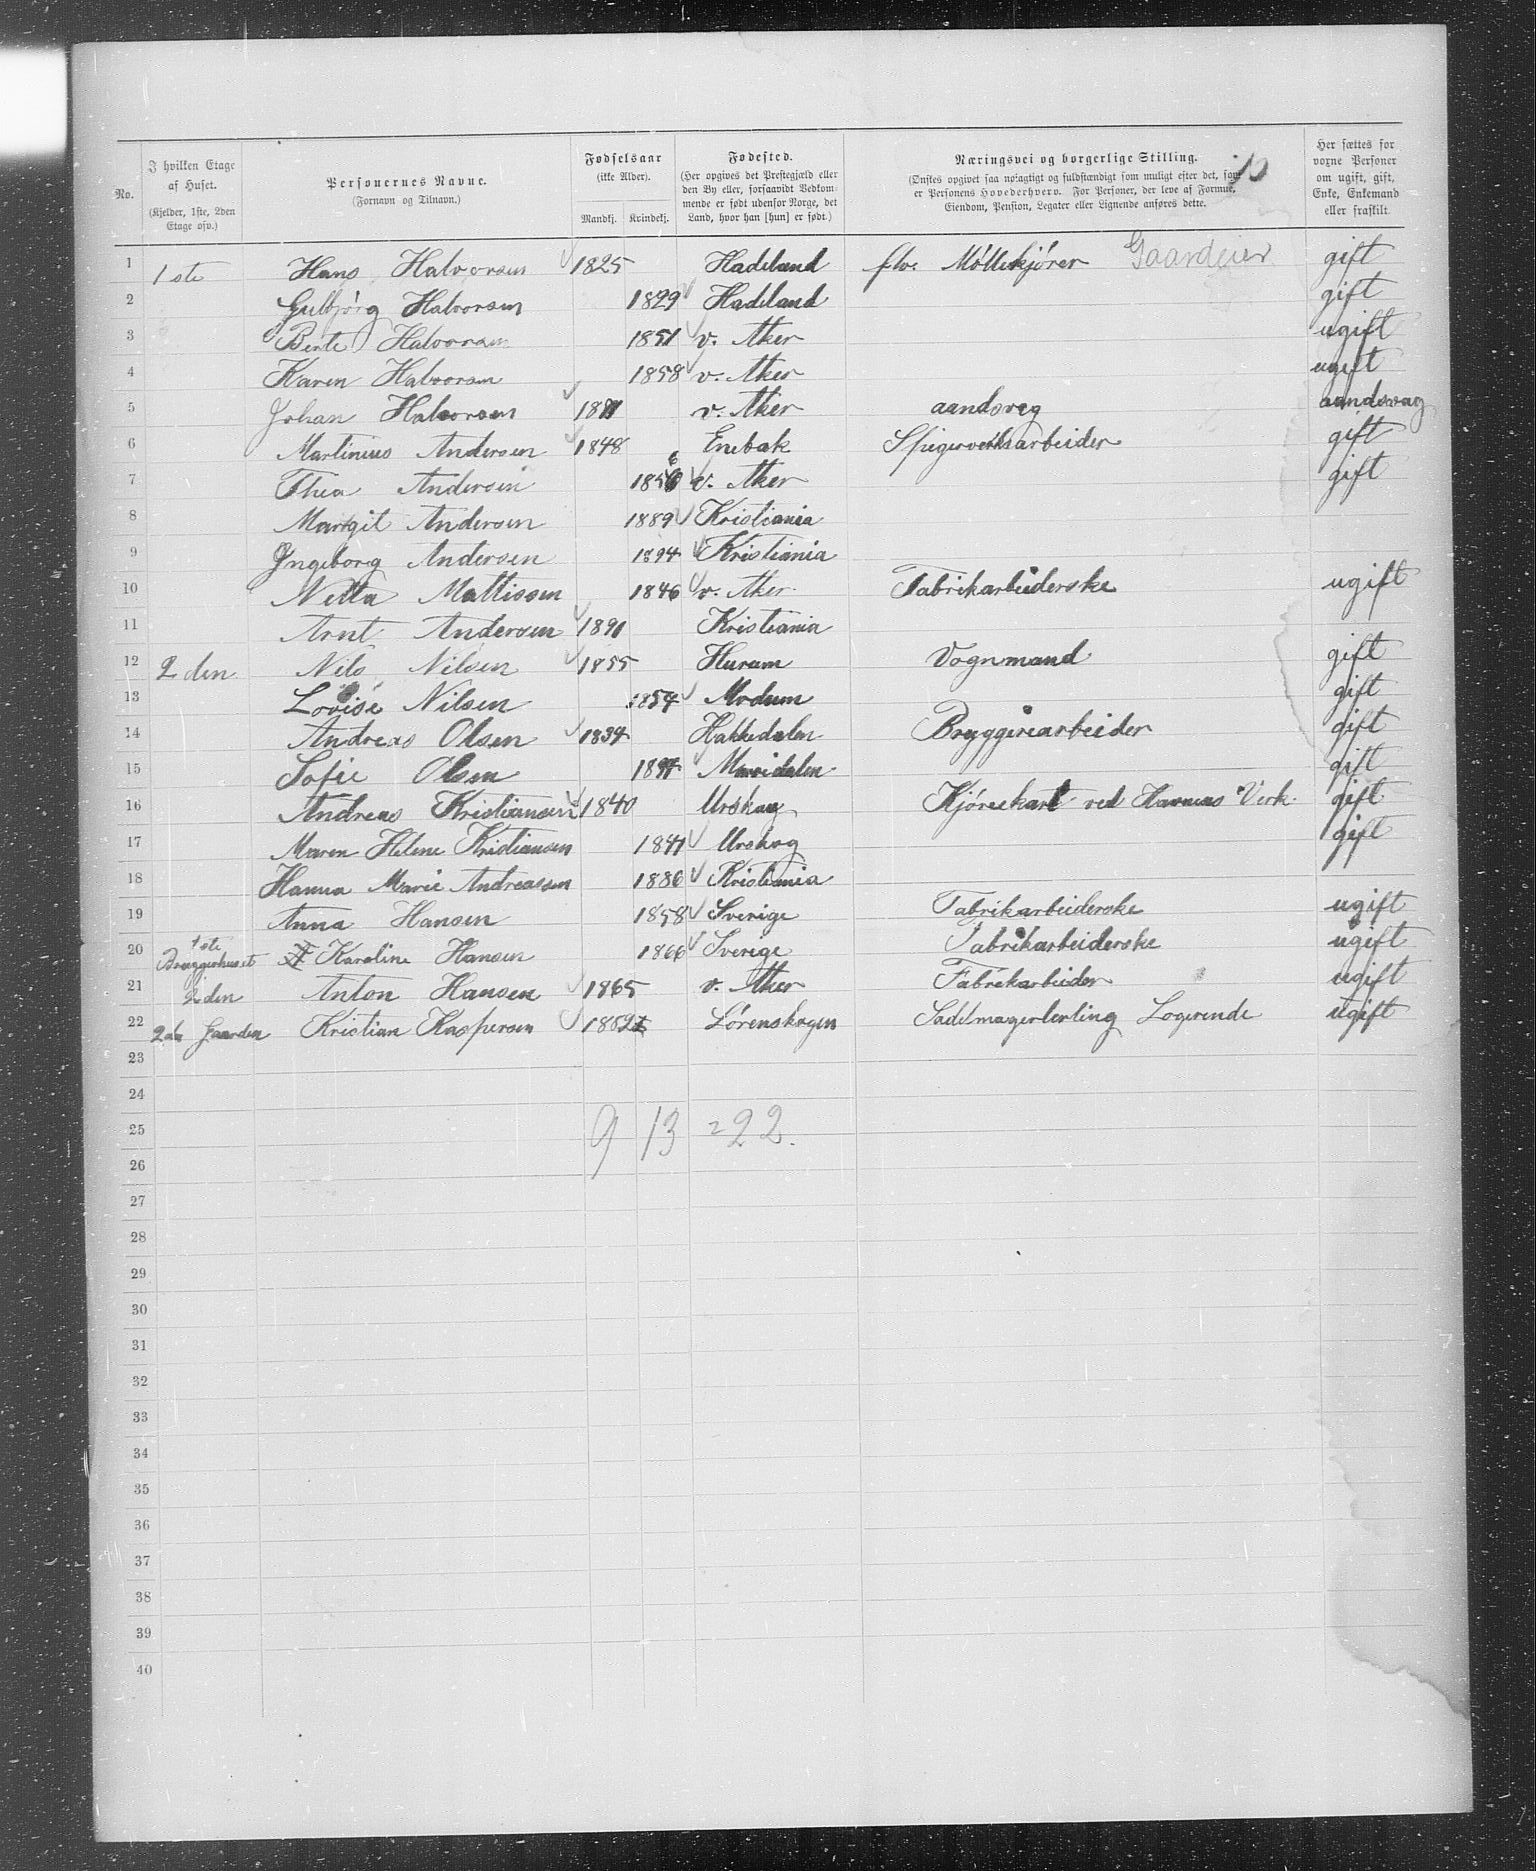 No.
I hvilken Etage af Huset.
(Kjelder, 1ste, 2den Etage osv.)
Personernes Navne.
(Fornavn og Tilnavn.)
Fødselsaar
(ikke Alder).
Mandkj. Kvindekj.
Fødested.
(Her opgives det Prestegjæld eller den By eller, forsaavidt Vedkommende er født udenfor Norge, det Land, hvor han [hun] er født.)
Næringsvei og borgerlige Stilling.
(Ønskes opgivet saa nøiagtigt og fuldstændigt som muligt efter det, som er Personens Hovederhverv. For Personer, der leve af Formue, Eiendom, Pension, Legater eller Lignende anføres dette.
Her sættes for voxne Personer om ugift, gift, Enke, Enkemand eller fraskilt.
1 1ste Hans Halvorsen 1825 Hadeland flv. Møllekjører Gaardeier gift
2 Gulbjørg Halvorsen 1829 Hadeland gift
3 Berte Halvorsen 1851 v. Aker ugift
4 Karen Halvorsen 1858 v. Aker ugift
5 Johan Halvorsen v. Aker aandsvag aandsvag
6 Martinius Andersen 1848 Enebak Spigerverksarbeider gift
7 Thea Andersen 1856 v. Aker gift
8 Margit Andersen 1889 Kristiania
9 Ingeborg Andersen 1894 Kristiania
10 Netta Mattissen 1846 v. Aker Fabrikarbeiderske ugift
11 Arnt Andersen 1891 Kristiania
12 2den Nils Nilsen 1855 Hurum Vognmand gift
13 Lovise Nilsen 1854 Modum gift
14 Andreas Olsen 1834 Hakkedalen Bryggeriarbeider gift
15 Sofie Olsen Maridalen gift
16 Andreas Kristiansen 1840 Urskog Kjørerkarl ved Havnens Verk gift
17 Maren Helene Kristiansen 1841 Urskog gift
18 Hanna Marie Andreassen 1886 Kristiania
19 Anna Hansen 1858 Sverige Fabrikarbeiderske ugift
20 1ste Bryggerhuset Karoline Hansen 1866 Sverige Fabrikarbeiderske ugift
21 2den Anton Hansen 1865 v. Aker Fabrikarbeider ugift
22 Gaarden Kristian Kaspersen 1882 Lørenskogen Sadelmagerlerling Logerende ugift
23
24
25 9 13 = 22.
26
27
28
29
30
31
32
33
34
35
36
37
38
39
40